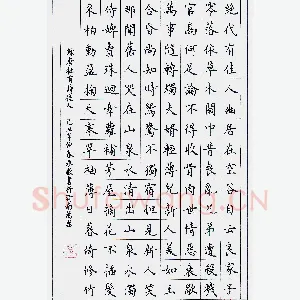 絕代有佳人幽居在空谷自云良家子
零落依草木關中昔喪亂兄弟遭殺戮
官高何足論不得收骨肉世情惡衰歇
萬事隨轉燭夫婿輕薄兒新人美如玉
合昏尚知時鴛鴦不獨宿但見新人笑
那聞舊人哭在山泉水清出山泉水濁
侍婢賣珠迴牽蘿補茅屋摘花不插髮
采柏動盈掬天寒翠袖薄日暮倚修竹
Shufawang.CN